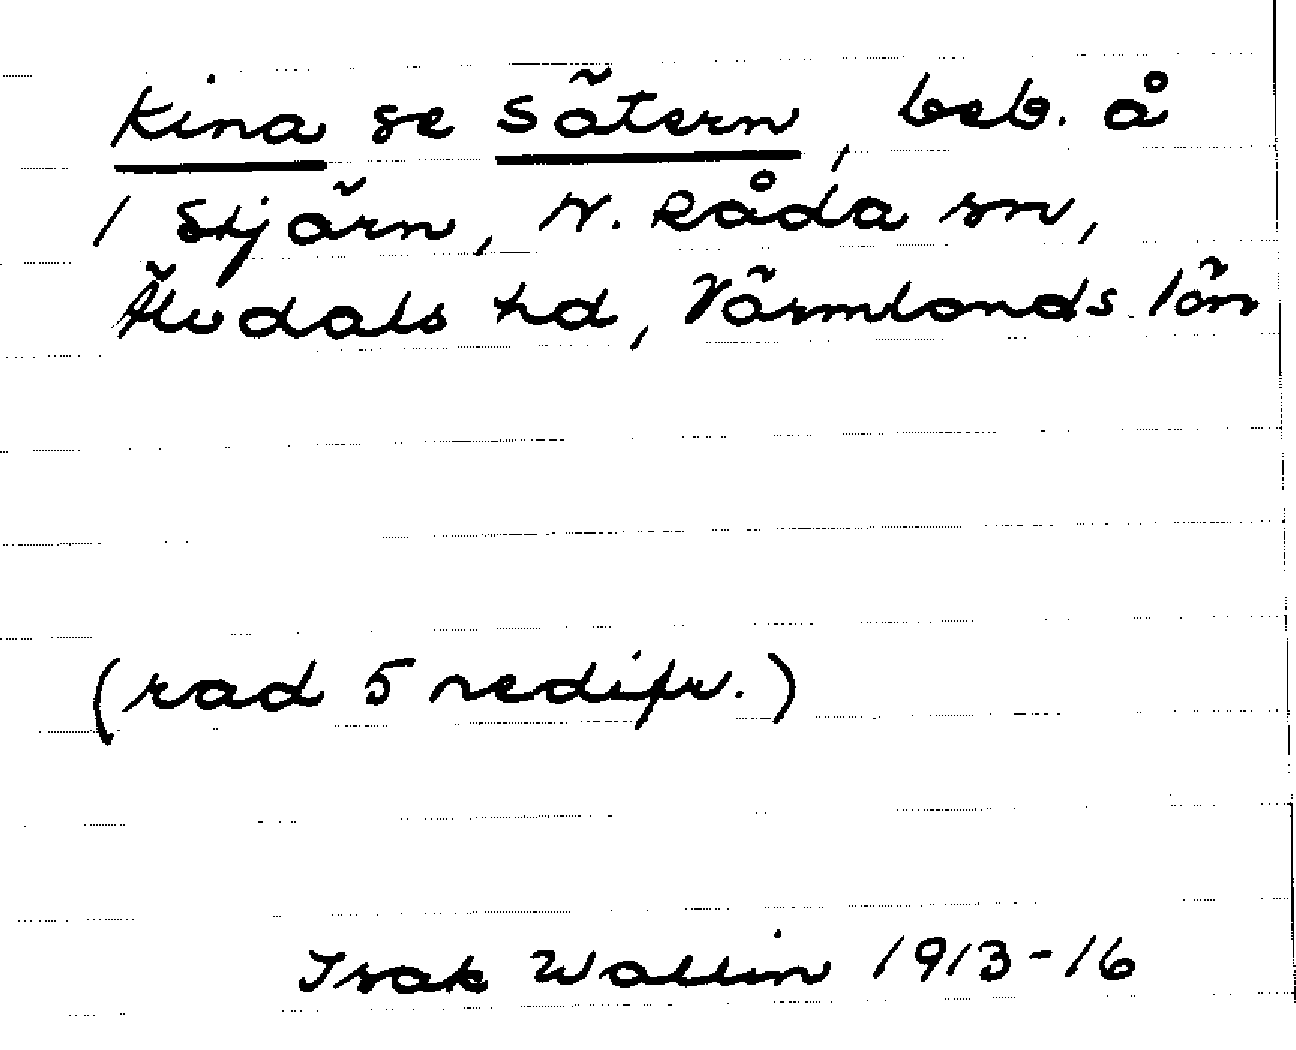 Kina se Sätern, beb. å
1 Stjärn, N. Råda sn,
Älvdals hd, Värmlands län
(rad 5 nedifr.)
Isak Wallin 1913-16